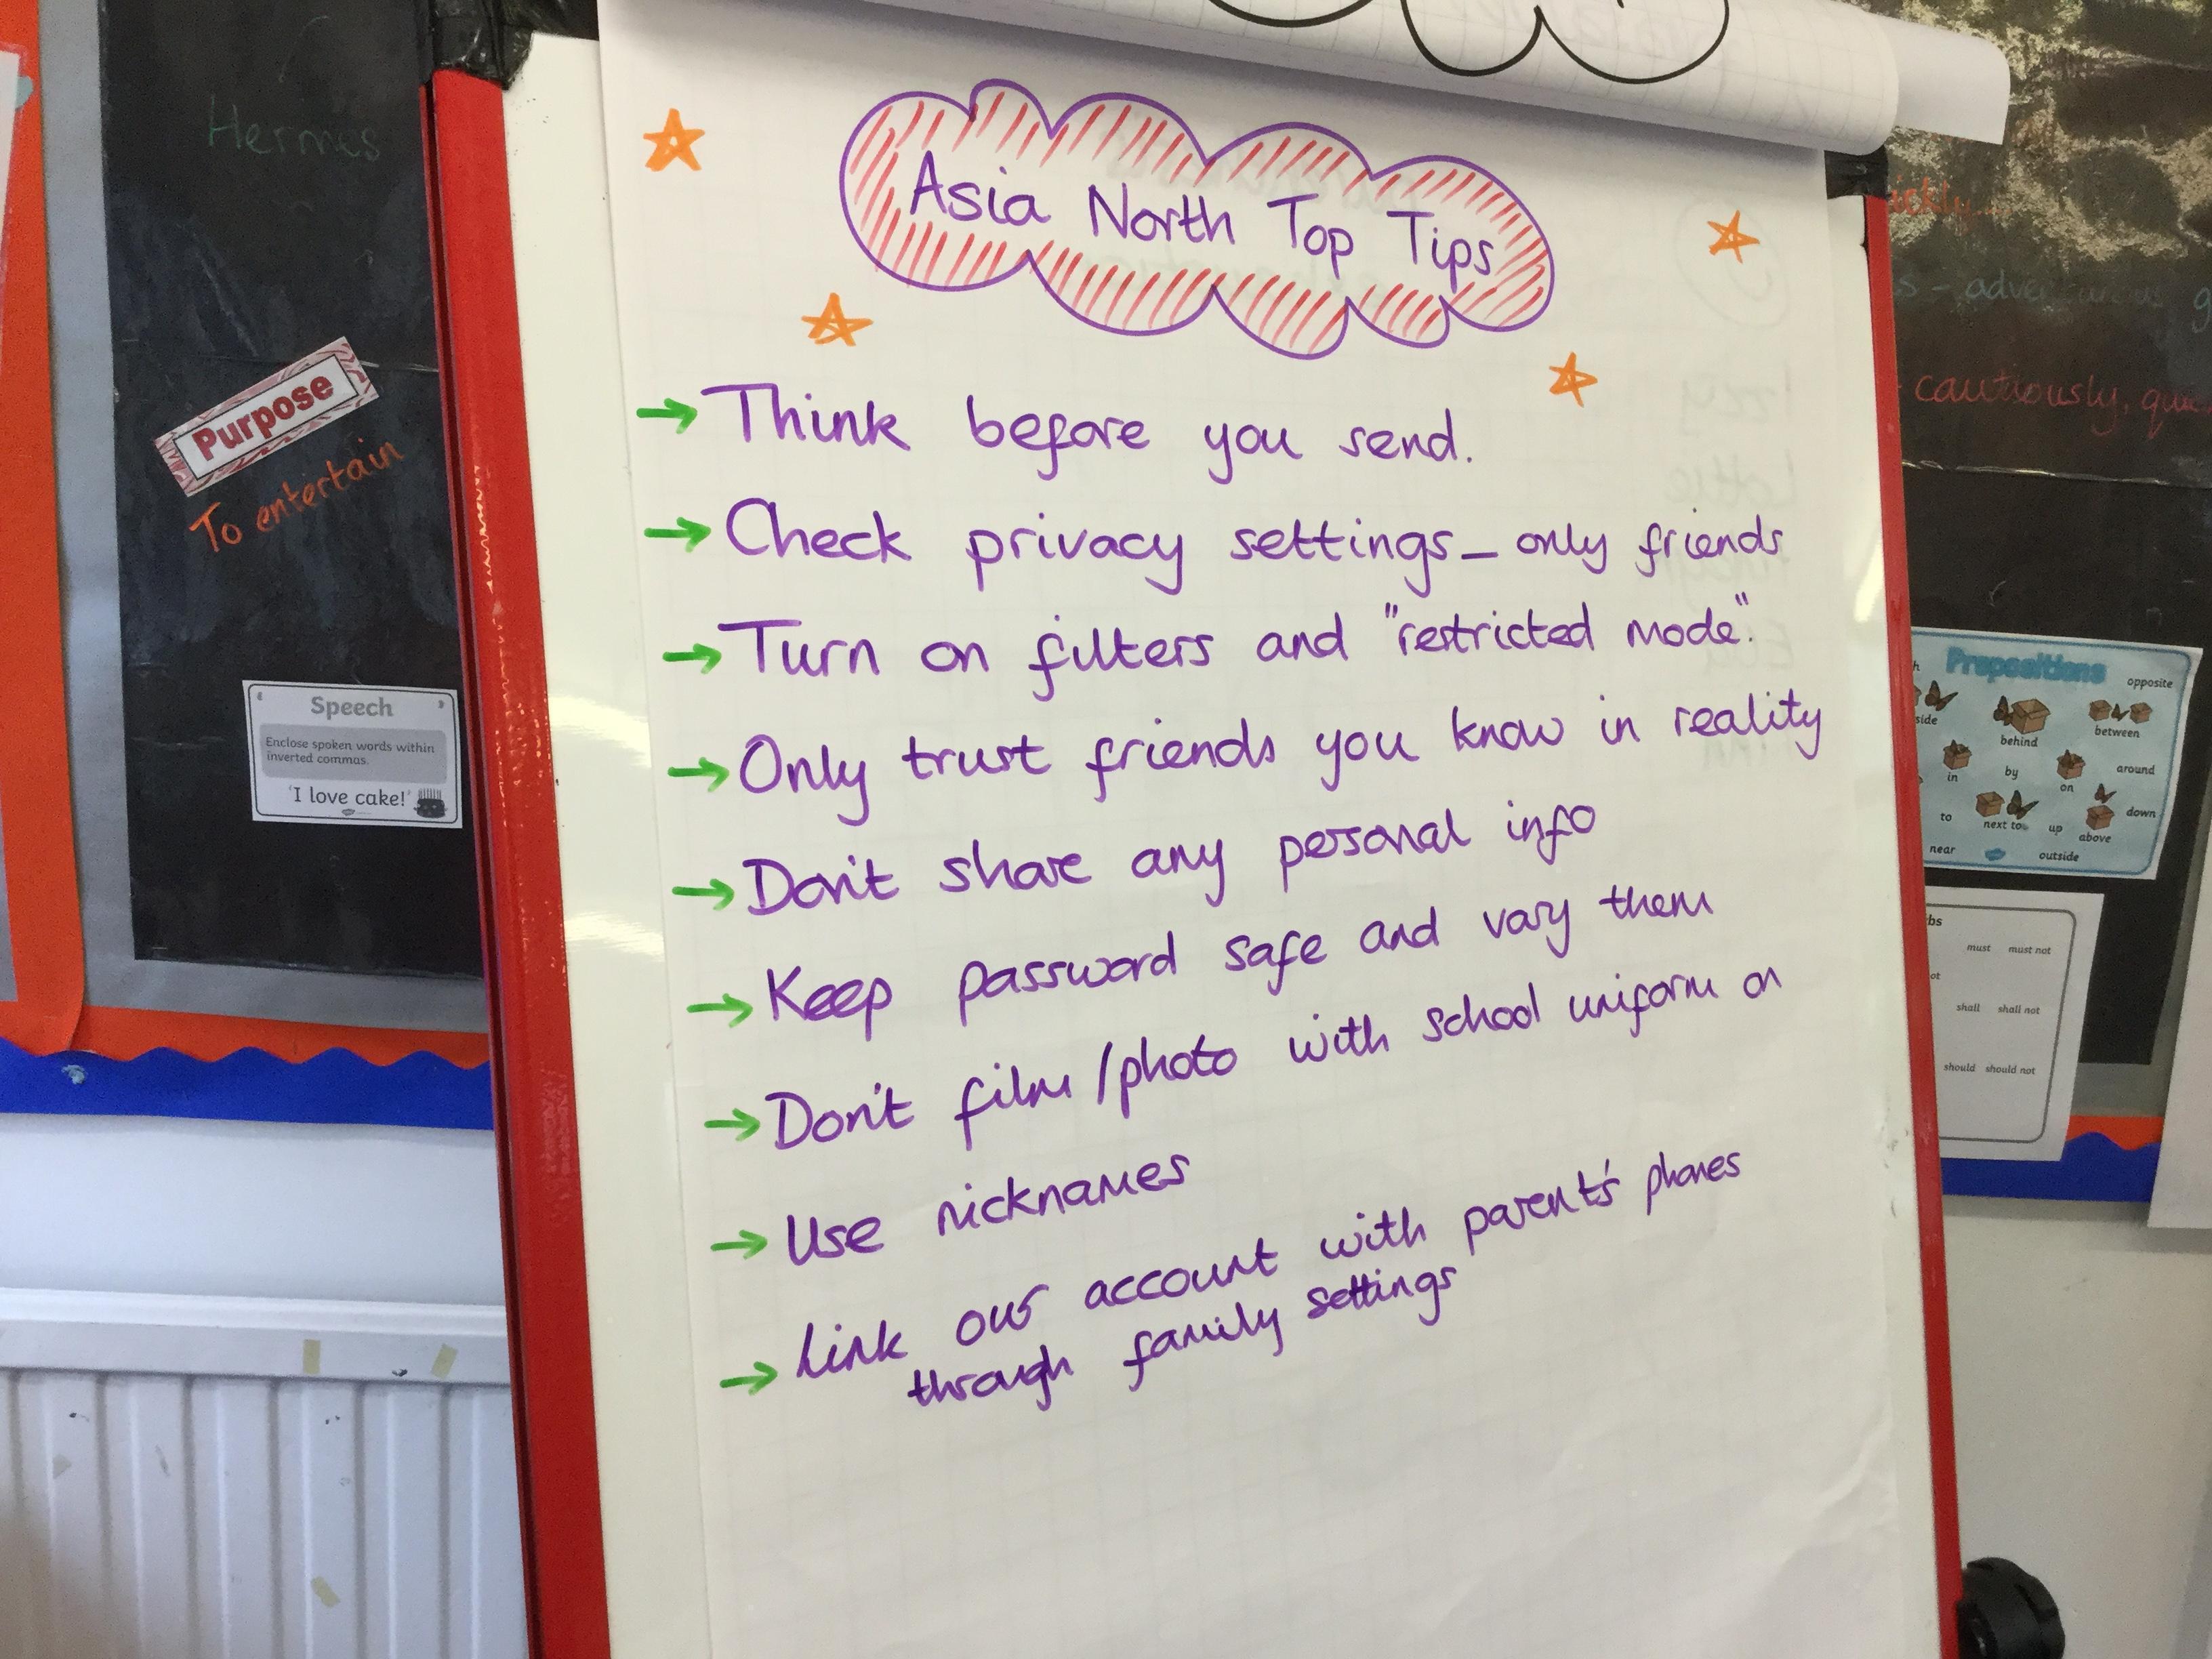 Asia North Top Tips
→ Think before you send.
→ Check privacy settings – only friends
→ Turn on filters and "restricted mode".
→ Only trust friends you know in reality
→ Don't share any personal info
→ Keep password safe and vary them
→ Don't film/photo with school uniform on
→ Use nicknames
→ Link our account with parent's phones
through family settings
Hermes
Purpose
To entertain
Speech
Enclose spoken words within
inverted commas.
'I love cake!'
cautiously,
Prepositions
opposite
behind
between
in
by
on
around
to
next to
up
above
down
near
outside
must must not
shall shall not
should should not